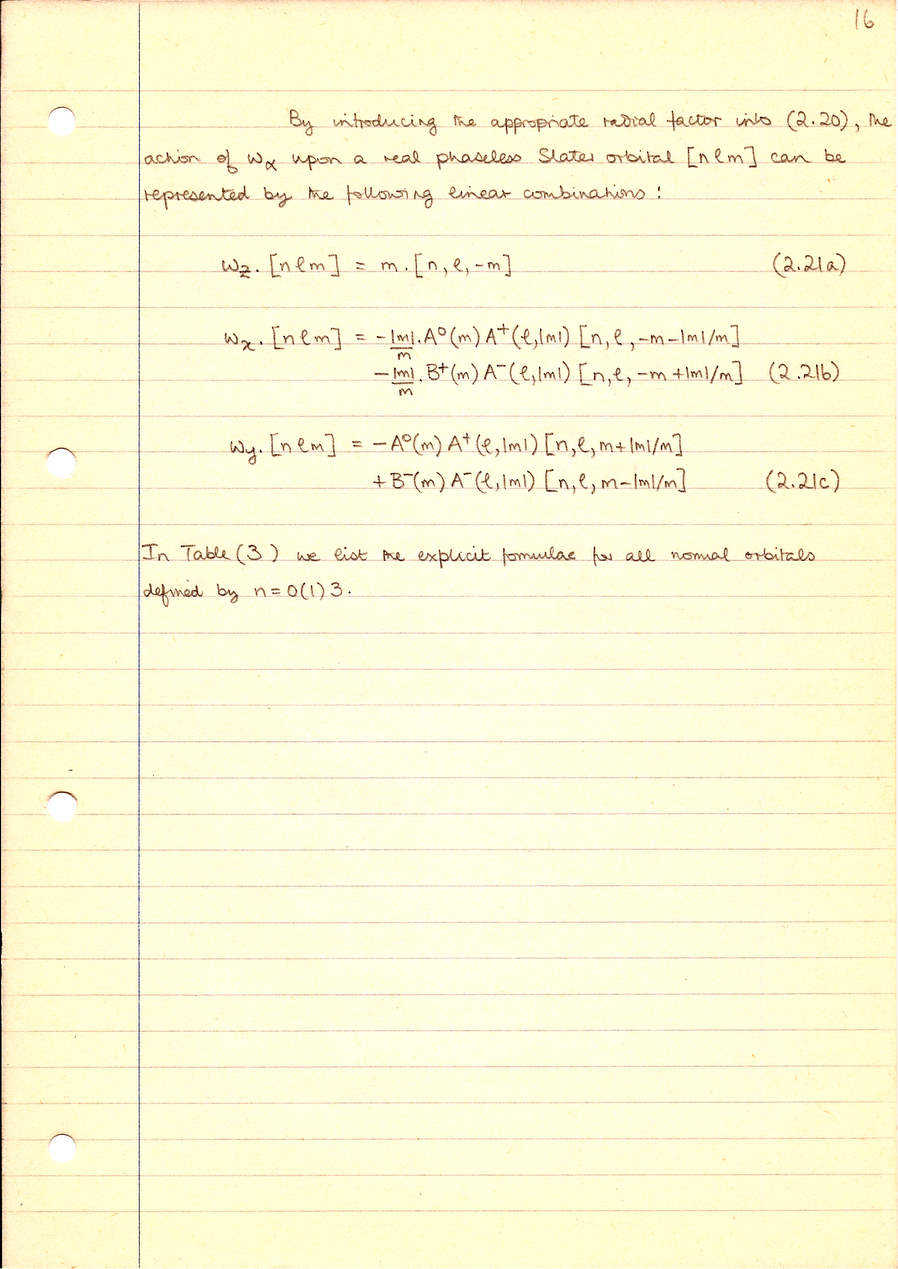 16
By introducing the appropriate radial factor into (2.20), the
action of ωα upon a real phaseless Slater orbital [n ℓ m] can be
represented by the following linear combinations:
ωz. [n ℓ m] = m. [n, ℓ, -m] (2.21a)
ωx. [n ℓ m] = -|m|/m. A⁰(m) A⁺(ℓ,|m|) [n, ℓ, -m-|m|/m]
-|m|/m. B⁺(m) A⁻(ℓ,|m|) [n, ℓ, -m+|m|/m] (2.21b)
ωy. [n ℓ m] = -A⁰(m) A⁺(ℓ,|m|) [n, ℓ, m+|m|/m]
+ B⁻(m) A⁻(ℓ,|m|) [n, ℓ, m-|m|/m] (2.21c)
In Table (3) we list the explicit formulae for all normal orbitals
defined by n = 0(1)3.